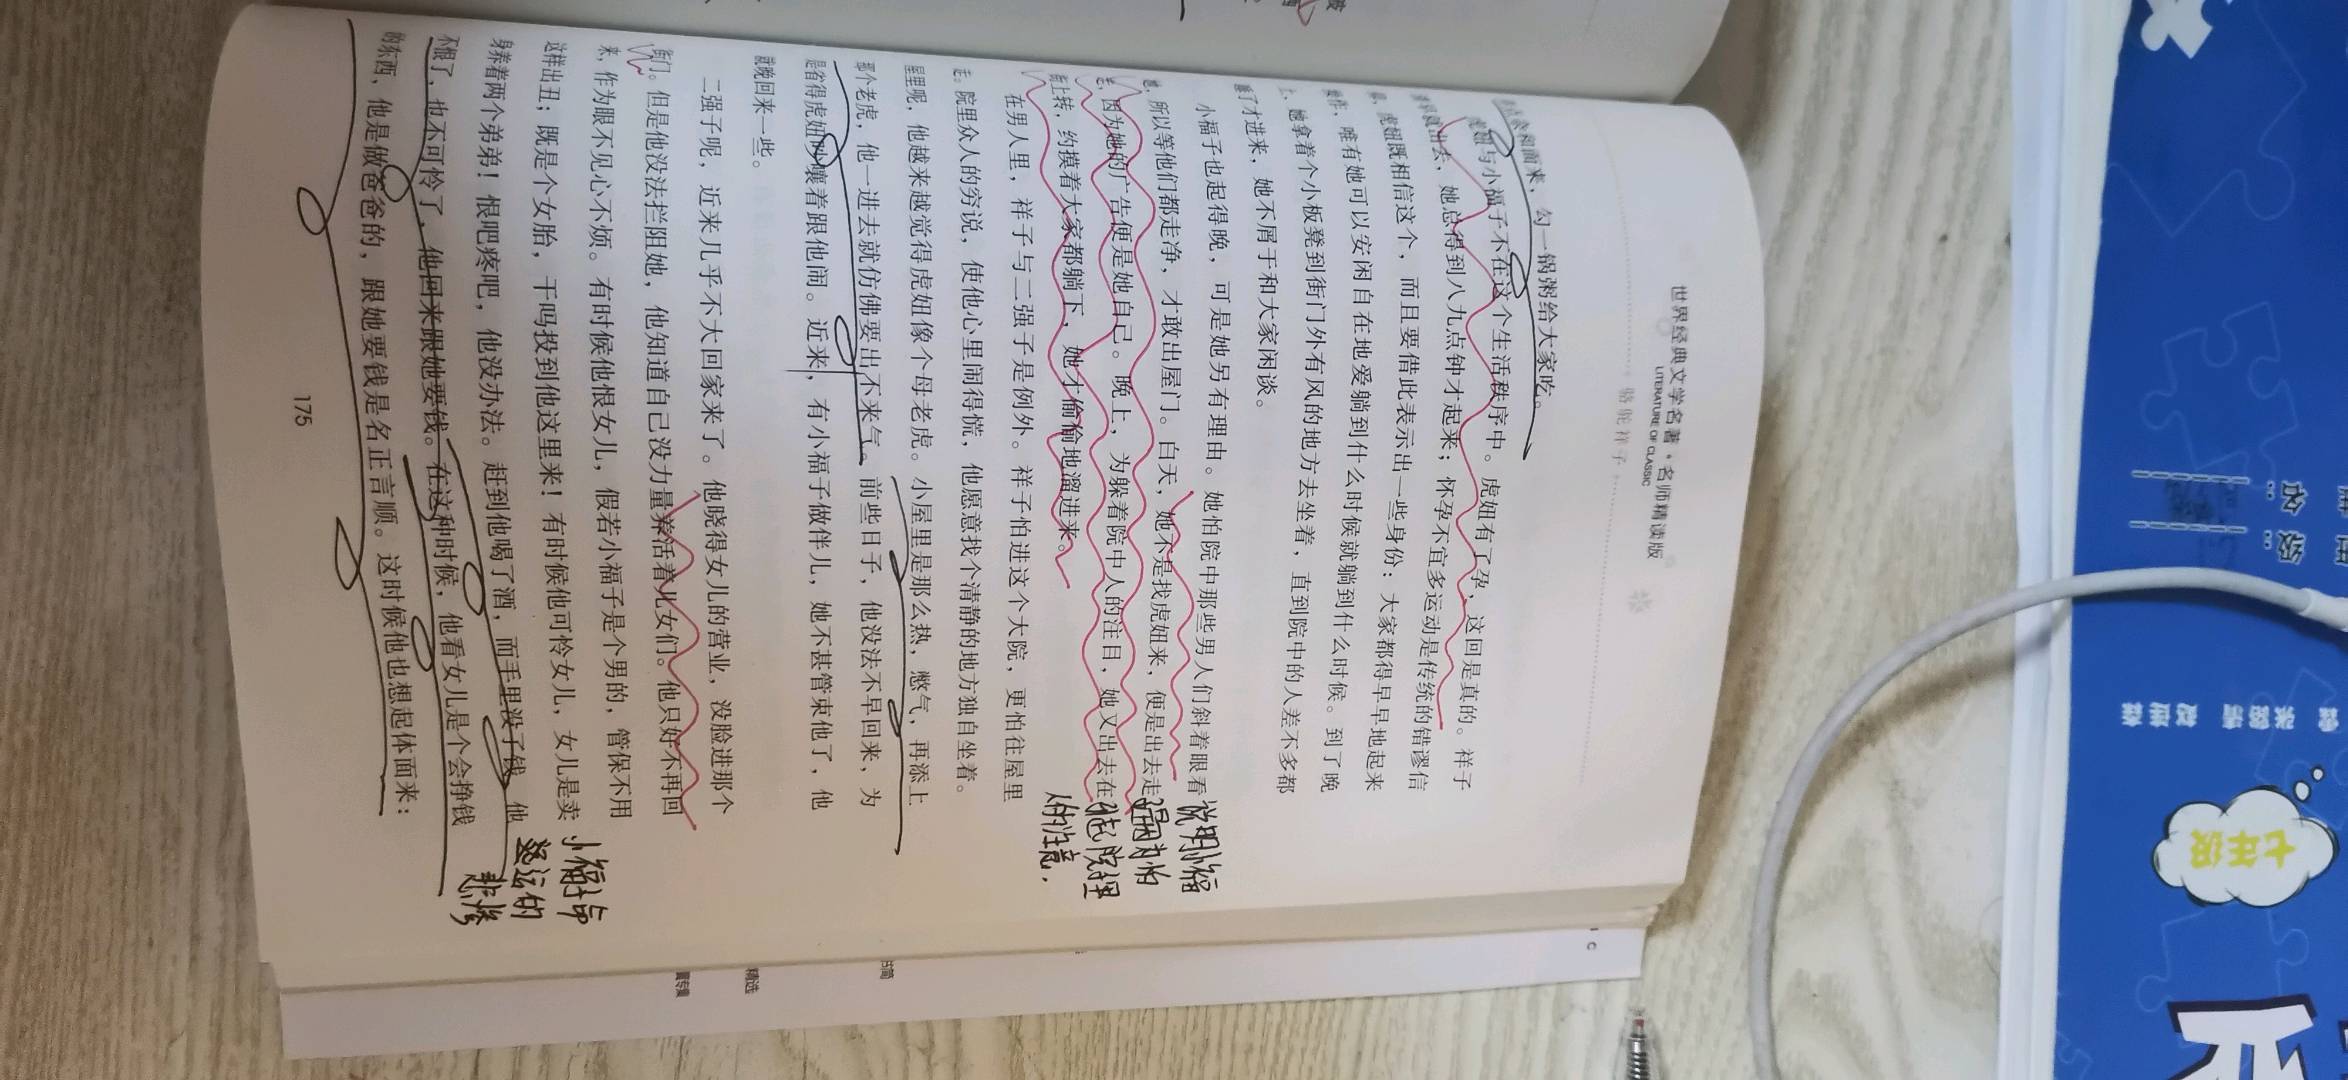 世界经典文学名著·名师精读版
LITERATURE OF CLASSIC
骆驼祥子
和面来，勾一锅粥给大家吃。
虎妞与小福子不在这个生活秩序中。虎妞有了孕，这回是真的。祥子
出去，她总得到八九点钟才起来；怀孕不宜多运动是传统的错谬信
虎妞既相信这个，而且要借此表示出一些身份：大家都得早早地起来
唯有她可以安闲自在地爱躺到什么时候就躺到什么时候。到了晚
上，她拿着个小板凳到街门外有风的地方去坐着，直到院中的人差不多都
睡了才进来，她不屑于和大家闲谈。
小福子也起得晚，可是她另有理由。她怕院中那些男人们斜着眼看
她，所以等他们都走净，才敢出屋门。白天，她不是找虎妞来，便是出去走
走，因为她的广告便是她自己。晚上，为躲着院中人的注目，她又出去在
街上转，约摸着大家都躺下，她才偷偷地溜进来。
在男人里，祥子与二强子是例外。祥子怕进这个大院，更怕往屋里
走。院里众人的穷说，使他心里闹得慌，他愿意找个清静的地方独自坐着。
屋里呢，他越来越觉得虎妞像个母老虎。小屋里是那么热，憋气，再添上
那个老虎，他一进去就仿佛要出不来气。前些日子，他没法不早回来，为
是省得虎妞吵嚷着跟他闹。近来，有小福子做伴儿，她不甚管束他了，他
就晚回来一些。
二强子呢，近来几乎不大回家来了。他晓得女儿的营业，没脸进那个
街门。但是他没法拦阻她，他知道自己没力量养活着儿女们。他只好不再回
来，作为眼不见心不烦。有时候他恨女儿，假若小福子是个男的，管保不用
这样出丑；既是个女胎，干吗投到他这里来！有时候他可怜女儿，女儿是卖
身养着两个弟弟！恨吧疼吧，他没办法。赶到他喝了酒，而手里没了钱，他
不恨了，也不可怜了，他回来跟她要钱。在这种时候，他看女儿是个会挣钱
的东西，他是做爸爸的，跟她要钱是名正言顺。这时候他也想起体面来：
175
说明小福
子是因为怕
引起院里
人的注意.
小福子命
运的
悲惨
书简
精选
七年级
张路清 赵连森
级：
名：